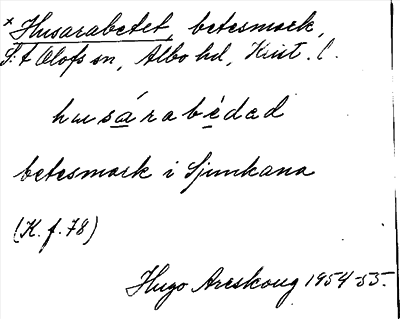 × Husarabetet, betesmark,
S:t Olofs sn, Albo hd, Krist. l.
husárabèdad
betesmark i Sjunkana
(K. f. 78)
Hugo Areskoug 1954-55.